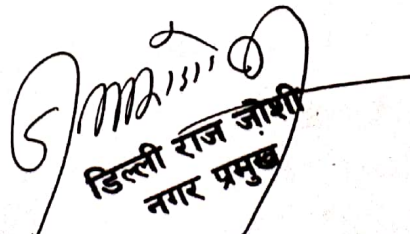 डिल्ली राज जोशी
नगर प्रमुख